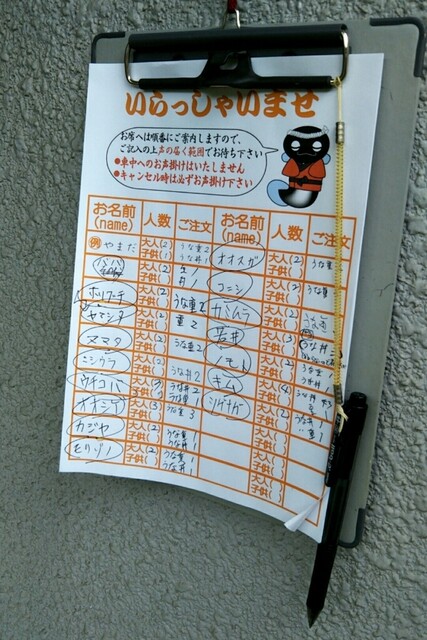 いらっしゃいませ
お席へは順番にご案内しますので、
ご記入の上声の届く範囲でお待ち下さい
●車中へのお声掛けはいたしません
●キャンセル時は必ずお声掛け下さい
お名前(name) 人数 ご注文 お名前(name) 人数 ご注文
例 やまだ 大人(2) 子供(1) うな重2 うな丼1
大人(2) 子供( )
ホリウチ 大人(2) 子供( ) うな重2
ヤマシタ 大人(2) 子供( ) 重2
ママタ 大人(2) 子供( ) うな重2
ヒシヌラ 大人( ) 子供( ) うな丼2
大人( ) 子供( ) うな丼2 うな重1
大人(3) 子供( ) うな重3
カジヤ 大人(2) 子供( ) うな重1 うな丼1
大人(2) 子供( ) うな重1 うな丼1
オオスガ 大人(2) 子供( ) うな重2
コニシ 大人(2) 子供( ) うな重
カミムラ 大人(2) 子供( )
岩井 大人(2) 子供( ) うな丼
ノモト 大人(2) 子供( ) うな重 うな丼
キム 大人(4) 子供( ) うな丼
シゲナガ 大人(2) 子供( ) うな丼1 〃重1
大人( ) 子供( )
大人( ) 子供( )
大人( ) 子供( )